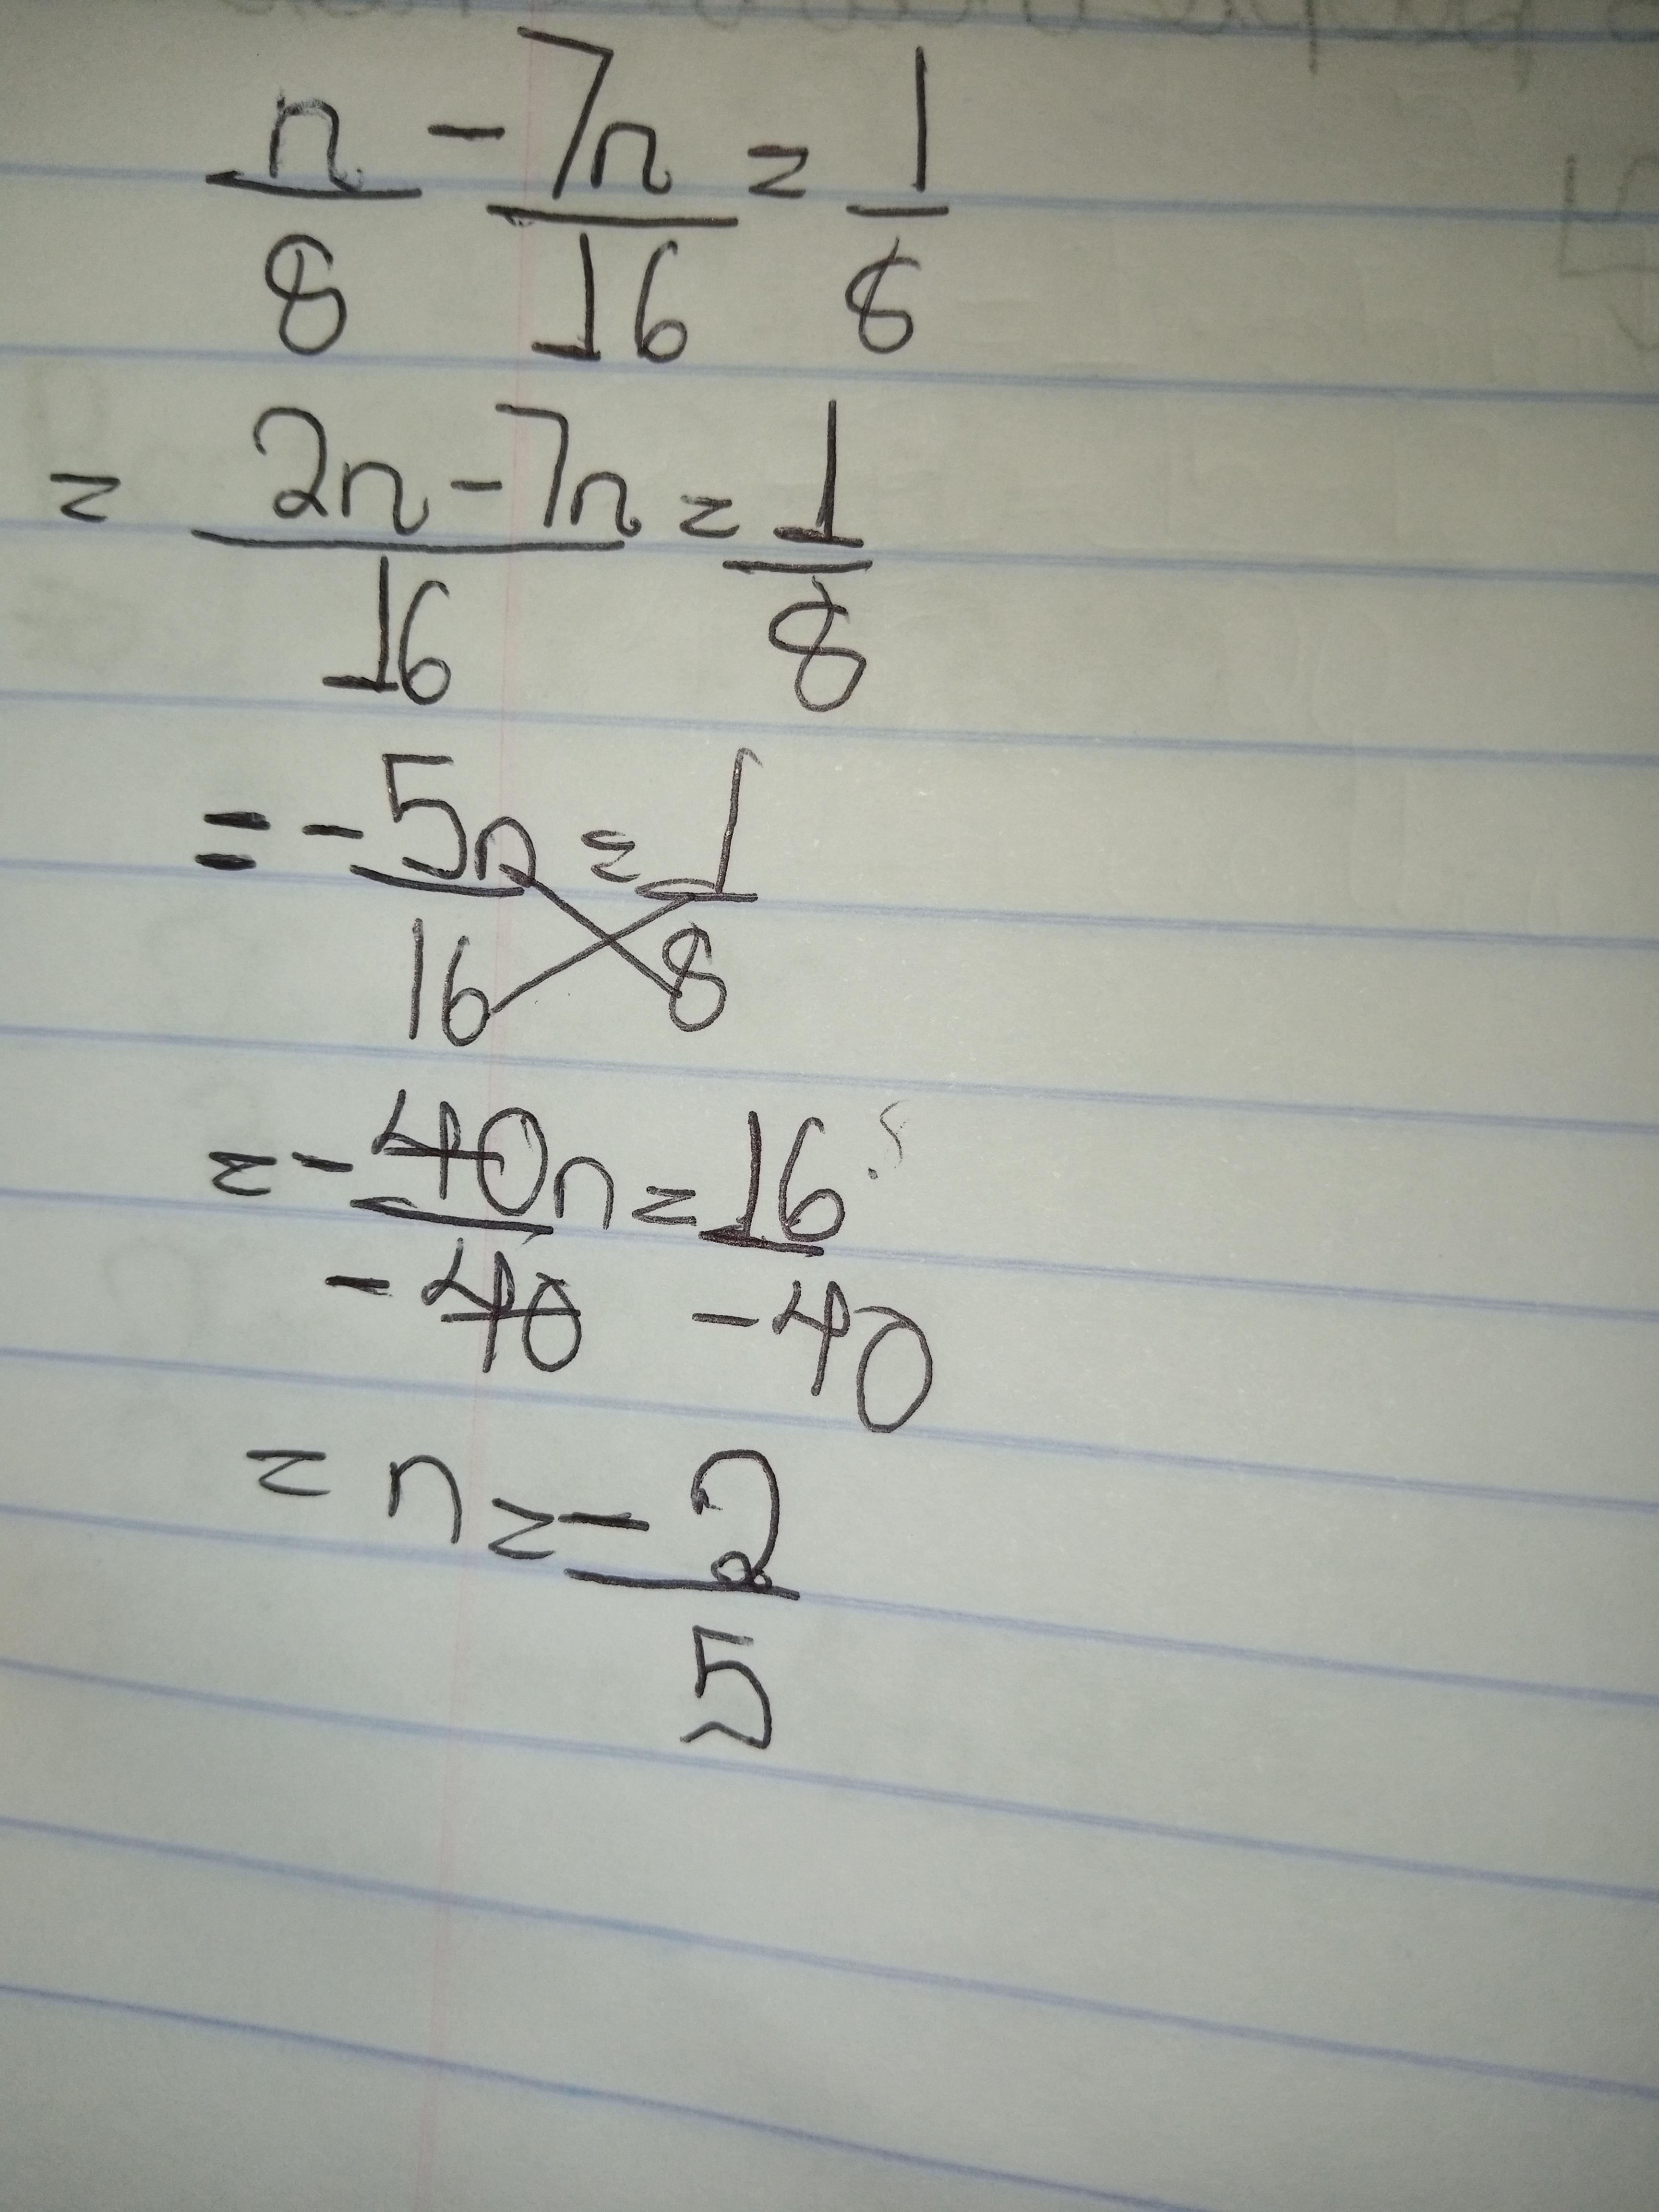 n/8 - 7n/16 = 1/8
= 2n - 7n/16 = 1/8
= - 5n/16 = 1/8
= - 40n/- 40 = 16/- 40
= n = - 2/5